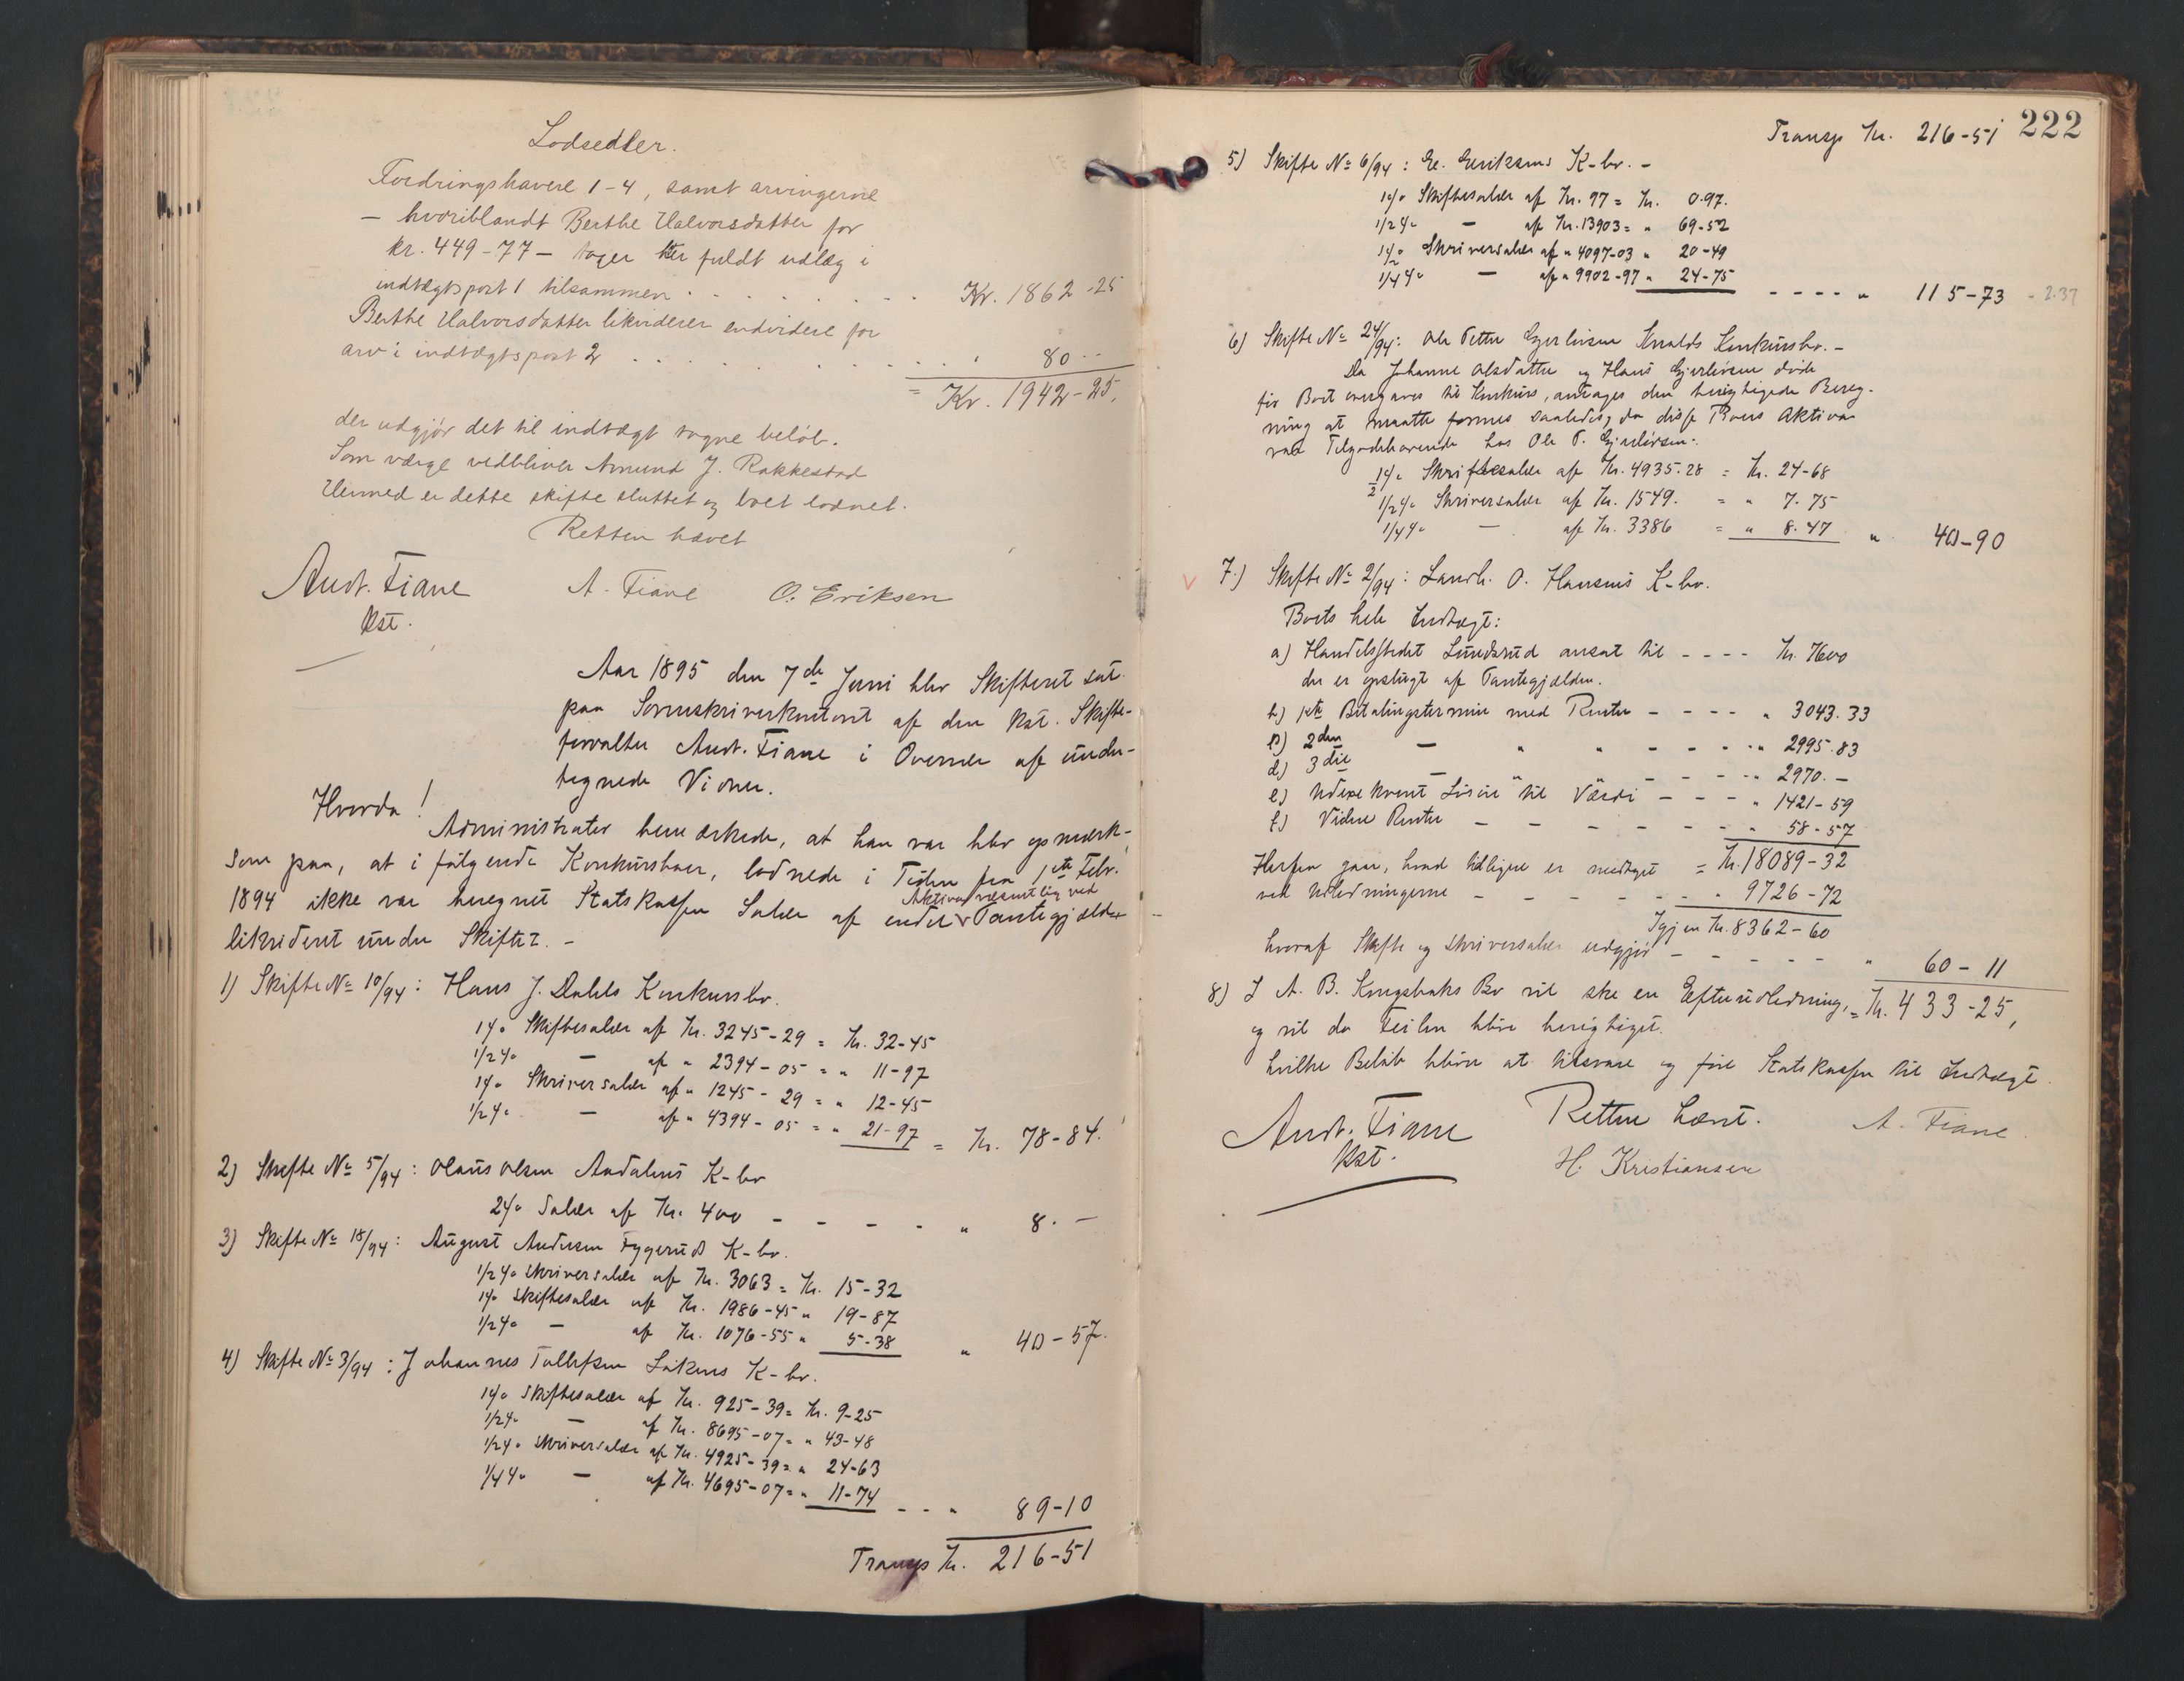 Lodsedler.
Fordringshavere 1-4, samt arvingerne
- hvoriblandt Berthe Halvorsdatter for
kr. 449-77 - tager her fuldt udlæg i
indtægtspost 1 tilsammen . . . . . . . Kr. 1862-25
Berthe Halvorsdatter likviderer endvidere for
arv i indtægtspost 2 . . . . . . . . . 80 --
= Kr. 1942-25.
der udgjør det til indtægt tagne beløb.
Som værge vedbliver Amund J. Rakkestad
Hermed er dette skifte sluttet og boet lodnet.
Retten hævet
Andr. Fiane A. Fiane O. Eriksen
Kst.
Aar 1895 den 7de Juni blev Skifteret sat
paa Sorenskriverkontoret af den Kst. Skifte-
forvalter Andr. Fiane i Overvær af under-
tegnede Vidner.
Hvorda!
Administrator bemærkede, at han var blev opmærk-
som paa, at i følgende Konkursboer, lodnede i Tiden fra 1ste Febr.
1894 ikke var beregnet Statskassen Salær af endel Pantegjælden
Aktiva væsentlig ved
likvideret under Skiftet. -
1) Skifte No 10/94: Hans J. Dahls Konkursbo.
1% Skiftesalær af Kr. 3245-29 = Kr. 32-45
1/2% - af " 2394-05 = " 11-97
1% Skriversalær af " 1245-29 = " 12-45
1/2% - af " 4394-05 = " 21-97 = Kr. 78-84.
2) Skifte No 5/94: Olaus Olsen Andalens K-bo
2% Salær af Kr. 400 - - - - " 8. -
3) Skifte No 18/94: August Andersen Fygeruds K-bo.
1/2% Skriversalær af Kr. 3063 = Kr. 15-32
1% Skiftesalær af Kr. 1986-45 " 19-87
1/2% - af Kr. 1076-55 " 5-38 " 40-57.
4) Skifte No 3/94: Johannes Tollefsen Løkens K-bo.
1% Skiftesalær af Kr. 925-39 = Kr. 9-25
1/2% - af Kr. 8695-07 = " 43-48
1/2% Skriversalær af Kr. 4925-39 = " 24-63
1/4% - af Kr. 4695-07 = " 11-74 - - " 89-10
Transp Kr. 216-51
222
Transp Kr. 216-51
5) Skifte No 6/94: Er. Eriksens K-bo. -
1% Skiftesalær af Kr. 97 = Kr. 0.97.
1/2% - af Kr. 13903 = " 69-52
1/2% Skriversalær af " 4097-03 " 20-49
1/4% - af " 9902-97 " 24-75 - - - - " 115-73 - 2.37
6) Skifte No 24/94: Ole Petter Gjerløvsen Konkursbo. -
Da Johanne Olsdatter og Hans Gjerløvsen døde
før Boet overgaves til Konkurs, antages den berigtigede Bereg-
ning at maatte formes saaledes, da disse Boers Aktiva
var Tilgodehavende hos Ole P. Gjerløvsen:
1/2% Skiftesalær af Kr. 4935.28 = Kr. 24-68
1/2% Skriversalær af Kr. 1549. = " 7.75
1/4% - af Kr. 3386 = " 8.47 " 40-90
7.) Skifte No 2/94: Landh. O. Hansens K-bo.
Boets hele Indtægt:
a) Handelsstedet Lundsrud ansat til - - - - Kr. 7600
der er opslugt af Pantegjælden.
b) 1ste Betalingstermin med Renter - - - - " 3043.33
c) 2den - " " - - - - " 2995.83
d) 3die - " - - - " 2970.-
e) Udexekveret Løsøre til Værdi - - - " 1421-59
f) Videre Renter - - - - - - " 58-57
= Kr. 18089-32
Herfra gaar, hvad tidligere er medtaget
ved Udlodningerne - - - - - " 9726-72
Igjen Kr. 8362-60
hvoraf Skifte og Skriversalær udgjør - - - - - " 60-11
= Kr. 433-25,
8) I A. B. Kongsbaks Bo vil ske en Efterudlodning,
og vil da Feilen blive berigtiget.
hvilke Beløb bliver at tilsvare og føre Statskassen til Indtægt.
Retten hævet.
Andr. Fiane A. Fiane.
Kst. H. Kristiansen